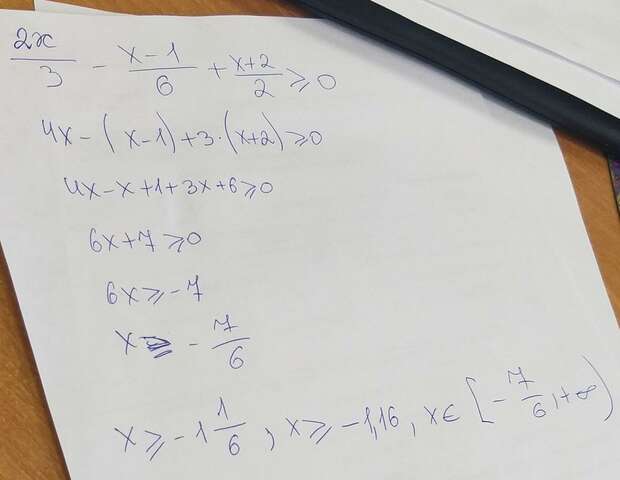 2x/3 - x-1/6 + x+2/2 ⩾ 0
4x - (x-1) + 3·(x+2) ⩾ 0
4x - x + 1 + 3x + 6 ⩾ 0
6x + 7 ⩾ 0
6x ⩾ -7
x ⩾ - 7/6
x ⩾ -1 1/6, x ⩾ -1,16, x ∈ [-7/6, +∞)